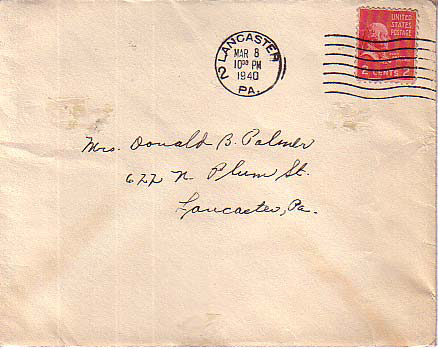 LANCASTER 2
MAR 8
10 30 PM
1940
PA.
UNITED
STATES
POSTAGE
2 CENTS 2
Mrs. Donald B. Palmer
622 N. Plum St.
Lancaster, Pa.